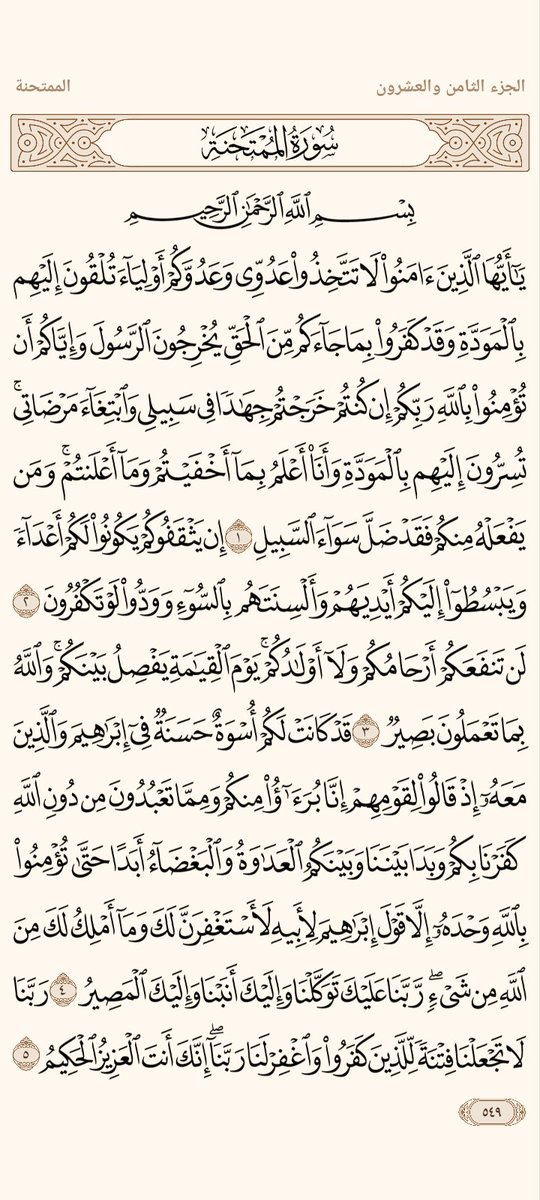 الجزء الثامن والعشرون
الممتحنة
سُورَةُ المُمْتَحنَةِ
بِسْمِ ٱللَّهِ ٱلرَّحْمَٰنِ ٱلرَّحِيمِ
يَٰٓأَيُّهَا ٱلَّذِينَ ءَامَنُوا۟ لَا تَتَّخِذُوا۟ عَدُوِّى وَعَدُوَّكُمْ أَوْلِيَآءَ تُلْقُونَ إِلَيْهِم
بِٱلْمَوَدَّةِ وَقَدْ كَفَرُوا۟ بِمَا جَآءَكُم مِّنَ ٱلْحَقِّ يُخْرِجُونَ ٱلرَّسُولَ وَإِيَّاكُمْ أَن
تُؤْمِنُوا۟ بِٱللَّهِ رَبِّكُمْ إِن كُنتُمْ خَرَجْتُمْ جِهَٰدًا فِى سَبِيلِى وَٱبْتِغَآءَ مَرْضَاتِى ۚ
تُسِرُّونَ إِلَيْهِم بِٱلْمَوَدَّةِ وَأَنَا۠ أَعْلَمُ بِمَآ أَخْفَيْتُمْ وَمَآ أَعْلَنتُمْ ۚ وَمَن
يَفْعَلْهُ مِنكُمْ فَقَدْ ضَلَّ سَوَآءَ ٱلسَّبِيلِ ١ إِن يَثْقَفُوكُمْ يَكُونُوا۟ لَكُمْ أَعْدَآءً
وَيَبْسُطُوٓا۟ إِلَيْكُمْ أَيْدِيَهُمْ وَأَلْسِنَتَهُم بِٱلسُّوٓءِ وَوَدُّوا۟ لَوْ تَكْفُرُونَ ٢
لَن تَنفَعَكُمْ أَرْحَامُكُمْ وَلَآ أَوْلَٰدُكُمْ ۚ يَوْمَ ٱلْقِيَٰمَةِ يَفْصِلُ بَيْنَكُمْ ۚ وَٱللَّهُ
بِمَا تَعْمَلُونَ بَصِيرٌ ٣ قَدْ كَانَتْ لَكُمْ أُسْوَةٌ حَسَنَةٌ فِىٓ إِبْرَٰهِيمَ وَٱلَّذِينَ
مَعَهُۥٓ إِذْ قَالُوا۟ لِقَوْمِهِمْ إِنَّا بُرَءَٰٓؤُا۟ مِنكُمْ وَمِمَّا تَعْبُدُونَ مِن دُونِ ٱللَّهِ
كَفَرْنَا بِكُمْ وَبَدَا بَيْنَنَا وَبَيْنَكُمُ ٱلْعَدَٰوَةُ وَٱلْبَغْضَآءُ أَبَدًا حَتَّىٰ تُؤْمِنُوا۟
بِٱللَّهِ وَحْدَهُۥٓ إِلَّا قَوْلَ إِبْرَٰهِيمَ لِأَبِيهِ لَأَسْتَغْفِرَنَّ لَكَ وَمَآ أَمْلِكُ لَكَ مِنَ
ٱللَّهِ مِن شَىْءٍ ۖ رَّبَّنَا عَلَيْكَ تَوَكَّلْنَا وَإِلَيْكَ أَنَبْنَا وَإِلَيْكَ ٱلْمَصِيرُ ٤ رَبَّنَا
لَا تَجْعَلْنَا فِتْنَةً لِّلَّذِينَ كَفَرُوا۟ وَٱغْفِرْ لَنَا رَبَّنَآ ۖ إِنَّكَ أَنتَ ٱلْعَزِيزُ ٱلْحَكِيمُ ٥
٥٤٩